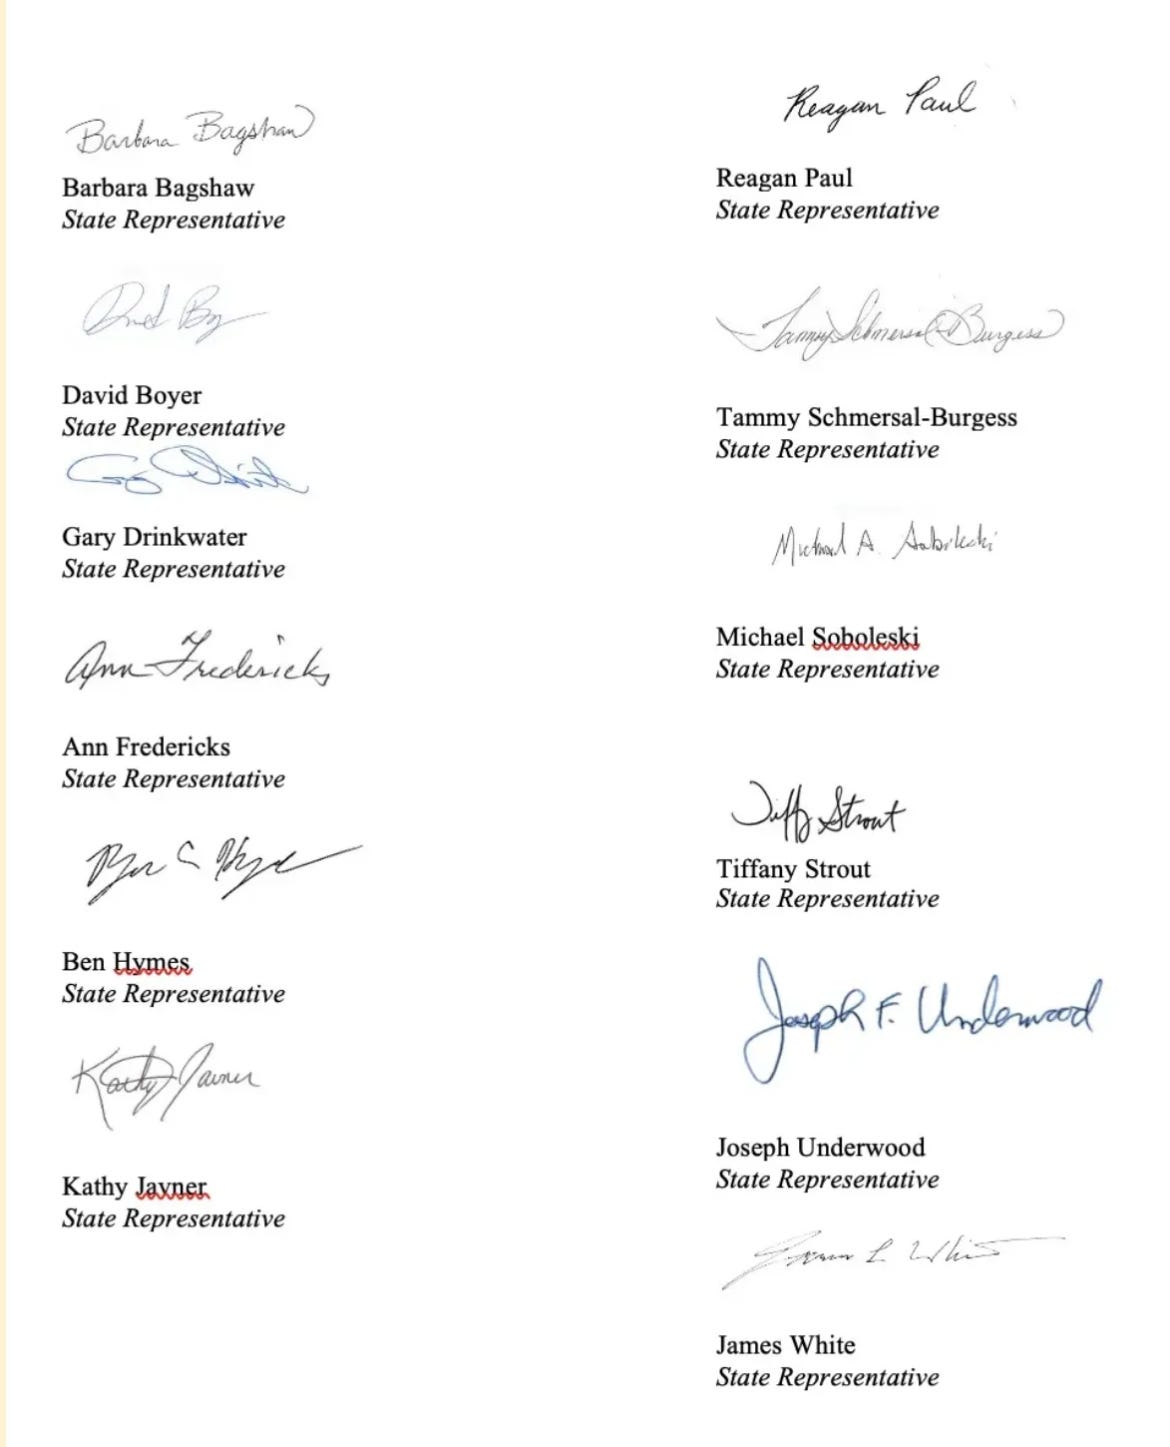 Barbara Bagshaw
Barbara Bagshaw
State Representative
David Boyer
State Representative
Gary Drinkwater
State Representative
Ann Fredericks
Ann Fredericks
State Representative
Ben Hymes
State Representative
Kathy Javner
Kathy Javner
State Representative
Reagan Paul
Reagan Paul
State Representative
Tammy Schmersal-Burgess
Tammy Schmersal-Burgess
State Representative
Michael A. Soboleski
Michael Soboleski
State Representative
Tiffy Strout
Tiffany Strout
State Representative
Joseph F. Underwood
Joseph Underwood
State Representative
James L White
James White
State Representative